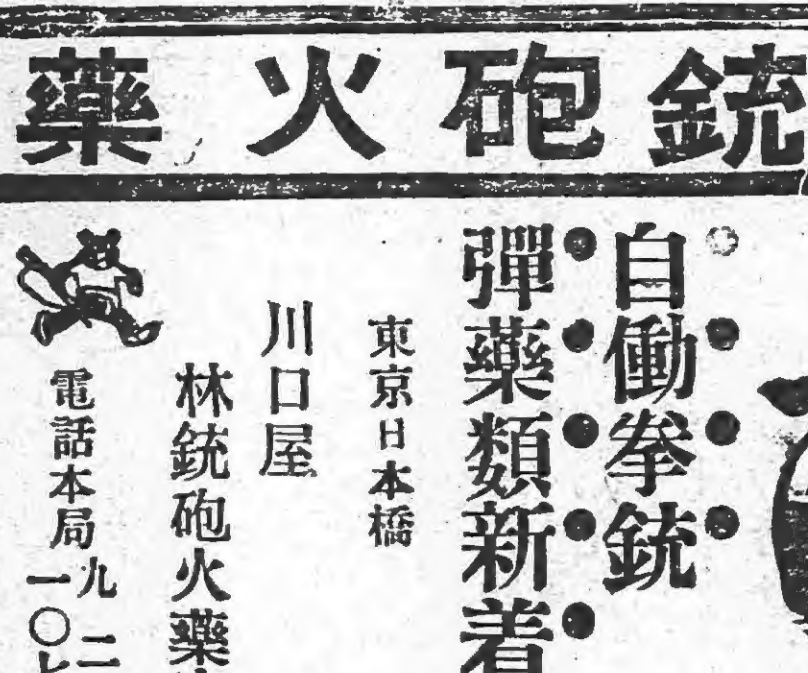 銃砲火藥
自働拳銃
彈藥類新着
東京日本橋
川口屋
林銃砲火藥
電話本局
九二
一〇七